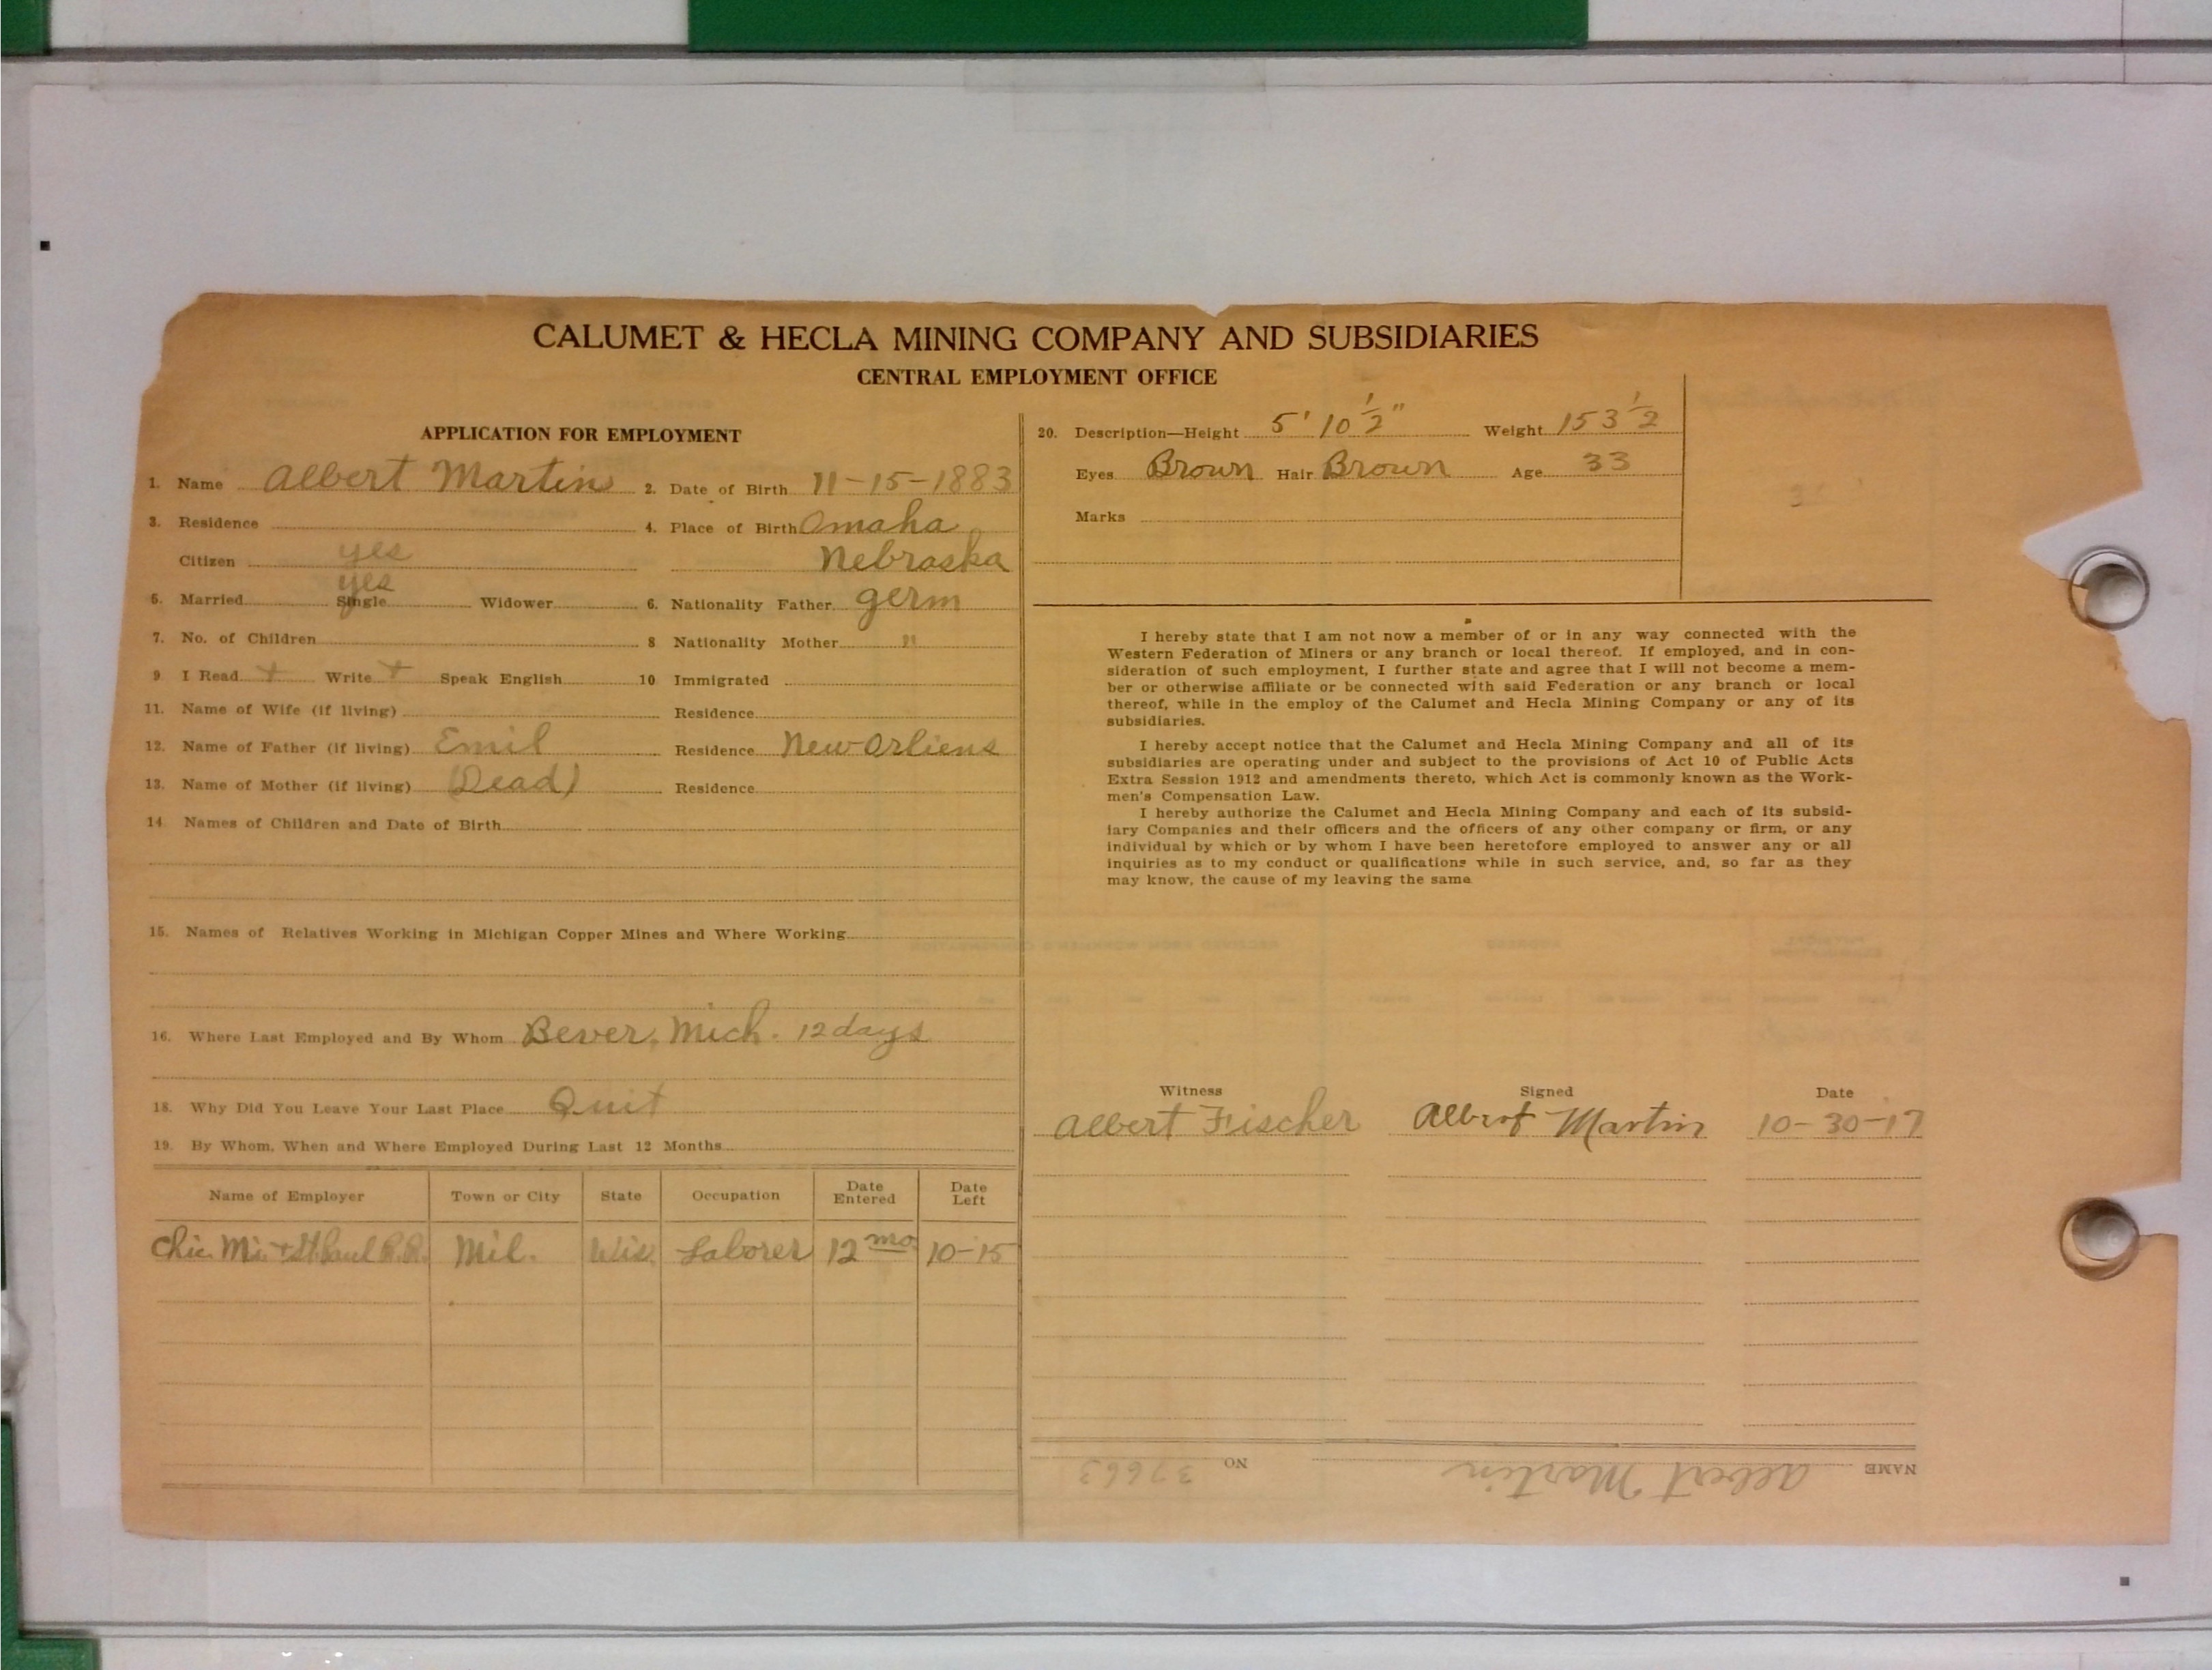 CALUMET & HECLA MINING COMPANY AND SUBSIDIARIES
CENTRAL EMPLOYMENT OFFICE
APPLICATION FOR EMPLOYMENT
1. Name Albert Martin 2. Date of Birth 11-15-1883
3. Residence 4. Place of Birth Omaha
Citizen yes Nebraska
5. Married Single yes Widower 6. Nationality Father germ
7. No. of Children 8 Nationality Mother "
9. I Read + Write + Speak English 10 Immigrated
11. Name of Wife (if living) Residence
12. Name of Father (if living) Emil Residence New-Orliens
13. Name of Mother (if living) (Dead) Residence
14. Names of Children and Date of Birth
15. Names of Relatives Working in Michigan Copper Mines and Where Working
16. Where Last Employed and By Whom Bever, Mich. 12 days
18. Why Did You Leave Your Last Place Quit
19. By Whom, When and Where Employed During Last 12 Months
Name of Employer Town or City State Occupation Date Entered Date Left
Chic. Mi. + St. Paul R.R. Mil. Wis. Laborer 12 mo 10-15
20. Description—Height 5' 10 1/2" Weight 153 1/2
Eyes Brown Hair Brown Age 33
Marks
I hereby state that I am not now a member of or in any way connected with the
Western Federation of Miners or any branch or local thereof. If employed, and in con-
sideration of such employment, I further state and agree that I will not become a mem-
ber or otherwise affiliate or be connected with said Federation or any branch or local
thereof, while in the employ of the Calumet and Hecla Mining Company or any of its
subsidiaries.
I hereby accept notice that the Calumet and Hecla Mining Company and all of its
subsidiaries are operating under and subject to the provisions of Act 10 of Public Acts
Extra Session 1912 and amendments thereto, which Act is commonly known as the Work-
men's Compensation Law.
I hereby authorize the Calumet and Hecla Mining Company and each of its subsid-
iary Companies and their officers and the officers of any other company or firm, or any
individual by which or by whom I have been heretofore employed to answer any or all
inquiries as to my conduct or qualifications while in such service, and, so far as they
may know, the cause of my leaving the same
Witness Signed Date
Albert Fischer Albert Martin 10-30-17
NAME Albert Martin NO 37663